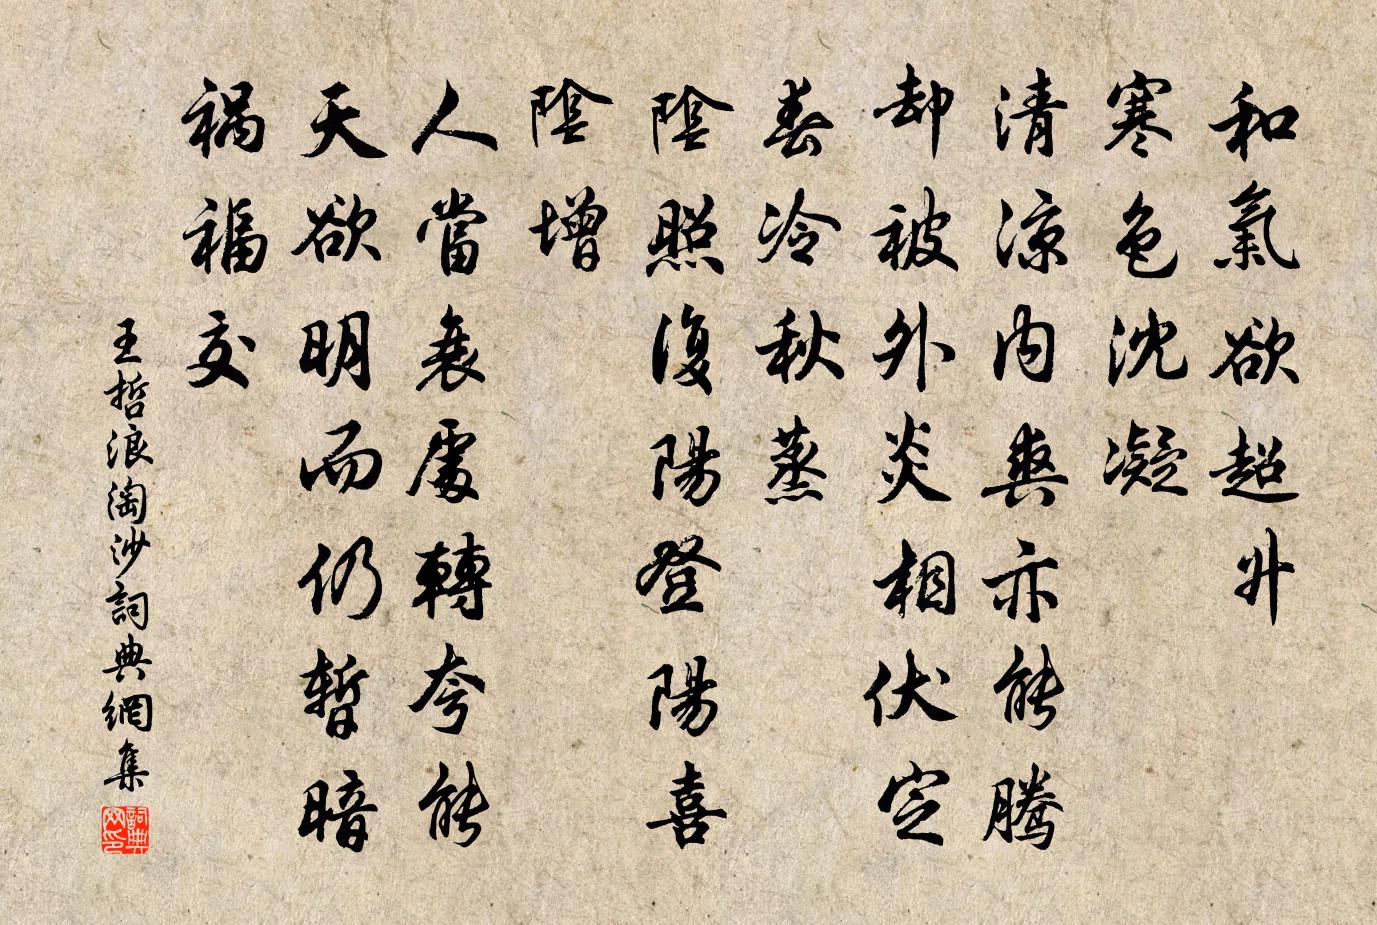 和氣欲超升
寒色沈凝
清涼內爽亦能騰
却被外炎相伏定
春冷秋蒸
陰照復陽登陽喜
陰增
人當衰處轉夸能
天欲明而仍暫暗
禍福交
王哲浪淘沙詞典網集
詞典網印